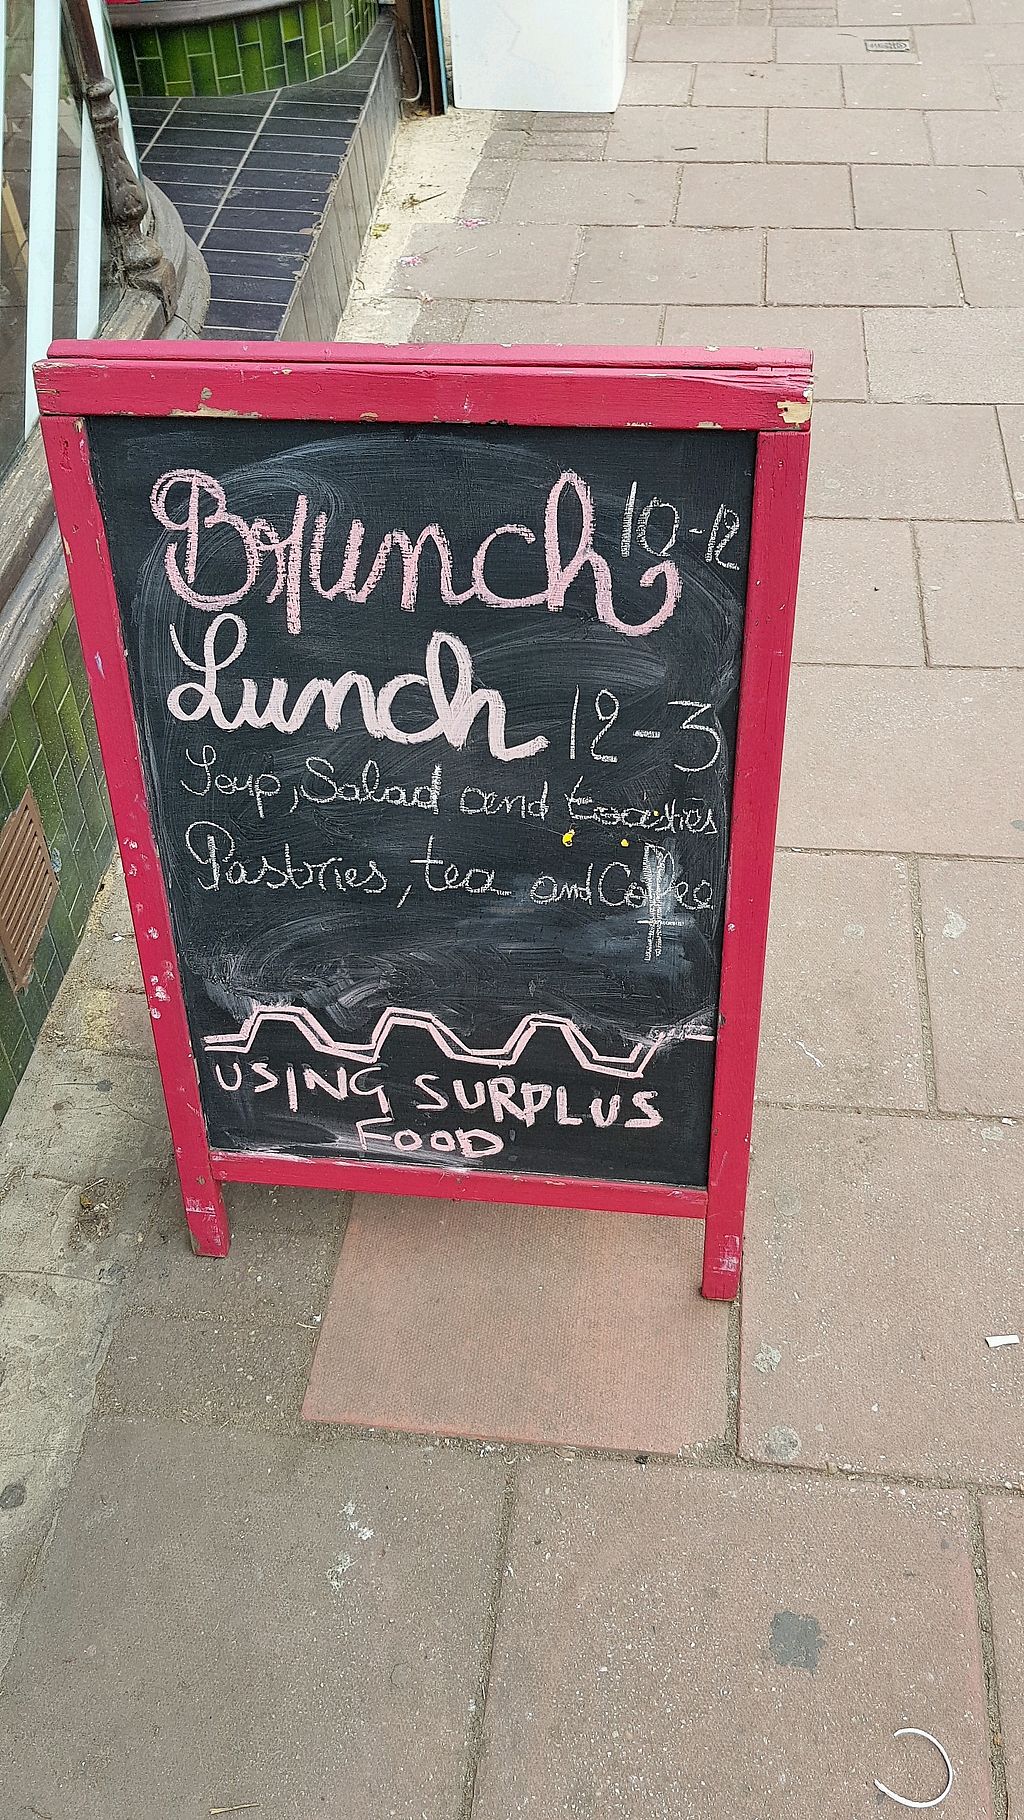 Brunch 10-12
Lunch 12-3
Soup, Salad and toasties
Pastries, tea and Coffee
USING SURPLUS
FOOD